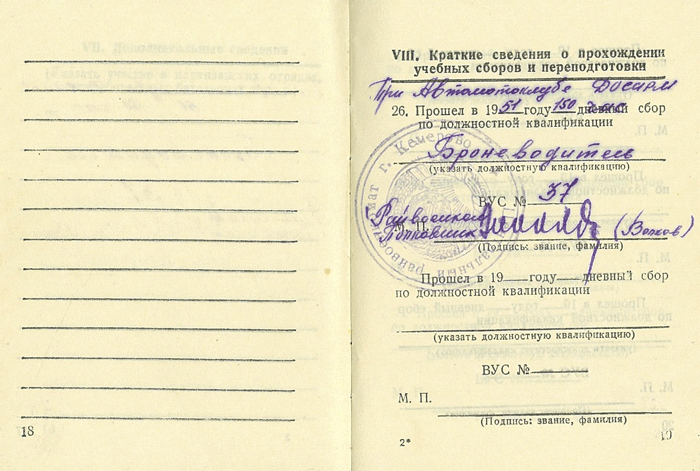 18
VIII. Краткие сведения о прохождении
учебных сборов и переподготовки
При Автомотоклубе Досарм
26. Прошел в 1951 году 150 час дневный сбор
по должностной квалификации
Броневодитель
(указать должностную квалификацию)
ВУС № 37
Райвоенком
М. П. Полковник (Волков)
(Подпись: звание, фамилия)
Прошел в 19 — году — дневный сбор
по должностной квалификации
(указать должностную квалификацию)
ВУС №
М. П.
(Подпись: звание, фамилия)
2*
19
г. Кемерово